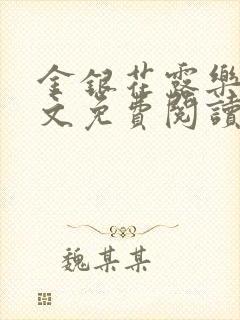 金銀花露樂
文免費閱讀
魏某某